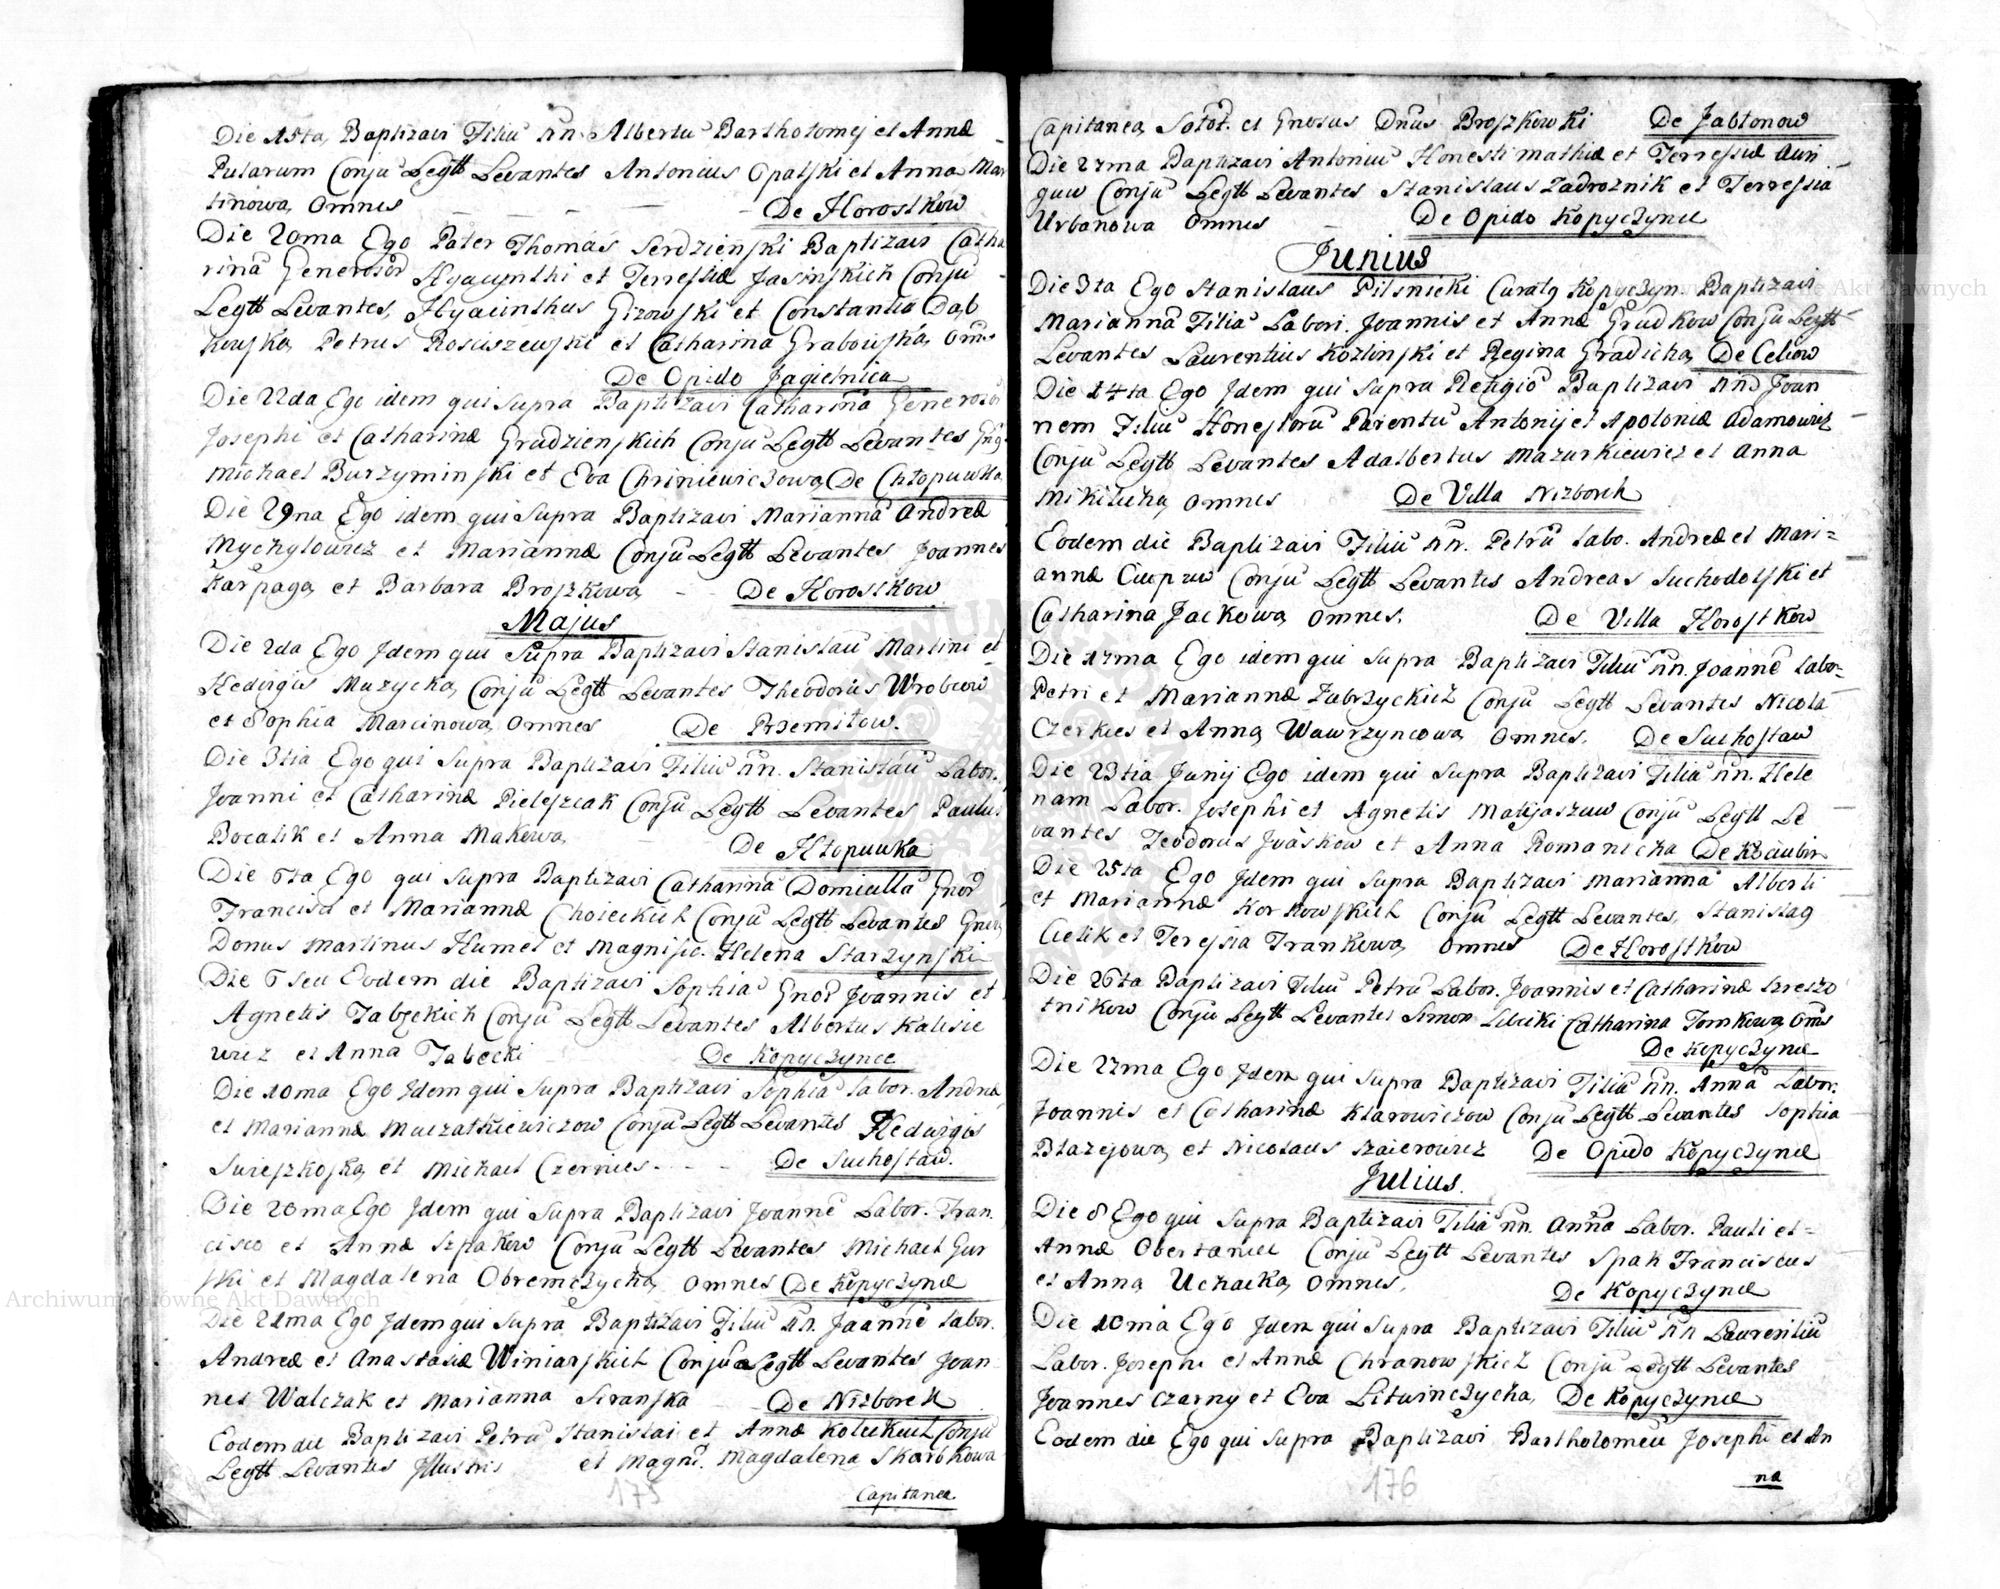 Die 15ta Baptizavi Filiũ nn. Albertũ Bartholomej et Annæ
Putarum Conjũ Legtt Levantes Antonius Opalski et Anna Mar
tinowa Omnes De Horostkow
Die 20ma Ego Pater Thomas Serdzienski Baptizavi Catha
rinã Generosor̃ Hyacynthi et Terresiæ Jasinskich Conjũ
Legtt Levantes, Hyacinthus Gizowski et Constantia Dąb
kowska Petrus Rosciszewski et Catharina Grabowska Oms
De Opido Jagielnica
Die 22da Ego idem qui Supra Baptizavi Catharinã Generosor̃
Josephi et Catharinæ Grudzienskich Conjũ Legtt Levantes
Michael Burzyminski et Eva Chriniewiczowa De Chłopuwka
Die 29na Ego idem qui Supra Baptizavi Mariannã Andreæ
Mychylowicz et Mariannæ Conjũ Legtt Levantes Joannes
Karpaga et Barbara Broszkowa De Horostkow
Majus
Die 2da Ego Idem qui Supra Baptizavi Stanislaũ Martini et
Hedvigis Muzycka Conjũ Legtt Levantes Theodorus Wrobiow
et Sophia Marcinowa Omnes De Przemiłow.
Die 3tia Ego qui Supra Baptizavi Filiũ nn. Stanislaũ Labor.
Joanni et Catharinæ Pielejzcak Conjũ Legtt Levantes Paulus
Bocalik et Anna Makowa De Htopuwka
Die 6ta Ego qui Supra Baptizavi Catharinã Domicellã Gnor̃
Francisci et Mariannæ Choieckich Conjũ Legtt Levantes
Donus Martinus Humel et Magnific. Helena Starzynski
Die 6 seu Eodem die Baptizavi Sophiã Gnor̃ Joannis et
Agnetis Tabęckich Conjũ Legtt Levantes Albertus Kalisie
wicz et Anna Tabecki De Kopyczynce
Die 10ma Ego Idem qui Supra Baptizavi Sophiã Labor. Andreæ
et Mariannæ Maczałkiewiczow Conjũ Legtt Levantes Hedwigis
Swieszkoska et Michael Czernies De Suchostaw.
Die 20ma Ego Idem qui Supra Baptizavi Joannẽ Labor. Fran.
cisco et Annæ Szpakow Conjũ Legtt Levantes Michael Gur
ski et Magdalena Obremczycha Omnes De Kopyczyncẽ
Die 21ma Ego Idem qui Supra Baptizavi Filiũ nn. Joannẽ Labor.
Andreæ et Anastasiæ Winiarskich Conjũ Legtt Levantes Joan
nes Walczak et Marianna Siranska De Nizborek
Eodem die Baptizavi Petrũ Stanislai et Annæ Koleckich Conjũ
Legtt Levantes Illustris et Magni. Magdalena Skarbkowa
175
Capitanea
Capitanea Sotot. et Gnosus Dnus Broszkowki De Jabtonow
Die 27ma Baptizavi Antoniũ Honesti Mathiæ et Terresiæ
Conjũ Legtt Levantes Stanislaus Zadroznik et Terresia
Urbanowa Omnes De Opido Kopyczyncẽ
Junius
Die 3ta Ego Stanislaus Pilsnicki Curatq Kopyczyn. Baptizavi
Mariannã Filiã Labori. Joannis et Annæ Grudkow Conjũ Legtt
Levantes Laurentius Kozlinski et Regina Gradicha De Celiow
Die 14ta Ego Idem qui Supra Religiõ Baptizavi nnõ Joan
nem Filiũ Honestorũ Parentũ Antonij et Apoloniæ Adamowicz
Conjũ Legtt Levantes Adalbertus Mazurkiewicz et Anna
Mikitucha Omnes De Villa Nizborek
Eodem die Baptizavi Filiũ nn. Petrũ Labo. Andreæ et Mari=
annæ Ciepzuw Conjũ Legtt Levantes Andreas Suchodolski et
Catharina Jackowa Omnes. De Villa Horostkow
Die 17ma Ego idem qui Supra Baptizavi Filiũ nn. Joannẽ Labor
Petri et Mariannæ Zabrzyckich Conjũ Legtt Levantes Nicola
Czerkies et Anna Wawrzyncowa Omnes. De Suchostaw
Die 23tia Junij Ego idem qui Supra Baptizavi Filiã nn. Hele
nam Labor. Josephi et Agnetis Matyjaszuw Conjũ Legtt Le
vantes Teodorus Iwaskow et Anna Romanicha
Die 25ta Ego Idem qui Supra Baptizavi Mariannã Alberti
et Mariannæ Korkowskich Conjũ Legtt Levantes, Stanislaq
Cielik et Teresia Frankowa Omnes De Horostkow
Die 26ta Baptizavi Filiũ Petrũ Labor. Joannis et Catharinæ Krzeszo
tnikow Conjũ Legtt Levantes Simon Libicki Catharina Tomkowa Oms
De Kopyczyncẽ
Die 27ma Ego Idem qui Supra Baptizavi Filiã nn. Annã Labor.
Joannis et Catharinæ Klarowiczow Conjũ Legtt Levantes Sophia
Btazejowa et Nicolaus Szaierowicz De Opido Kopyczyncẽ
Julius.
Die 8 Ego qui Supra Baptizavi Filiã nn. Annã Labor. Pauli et=
Annæ Obertaniec Conjũ Legtt Levantes Spak Franciscus
et Anna Uchacka Omnes. De Kopyczyncẽ
Die 10ma Ego Idem qui Supra Baptizavi Filiũ nn Laurentiũ
Labor. Josephi et Annæ Chranowskich Conjũ Legtt Levantes
Joannes Czarny et Eva Litwinczycha, De Kopyczyncẽ
Eodem die Ego qui Supra Baptizavi Bartholomeũ Josephi et An
176
na
Archiwum Główne Akt Dawnych